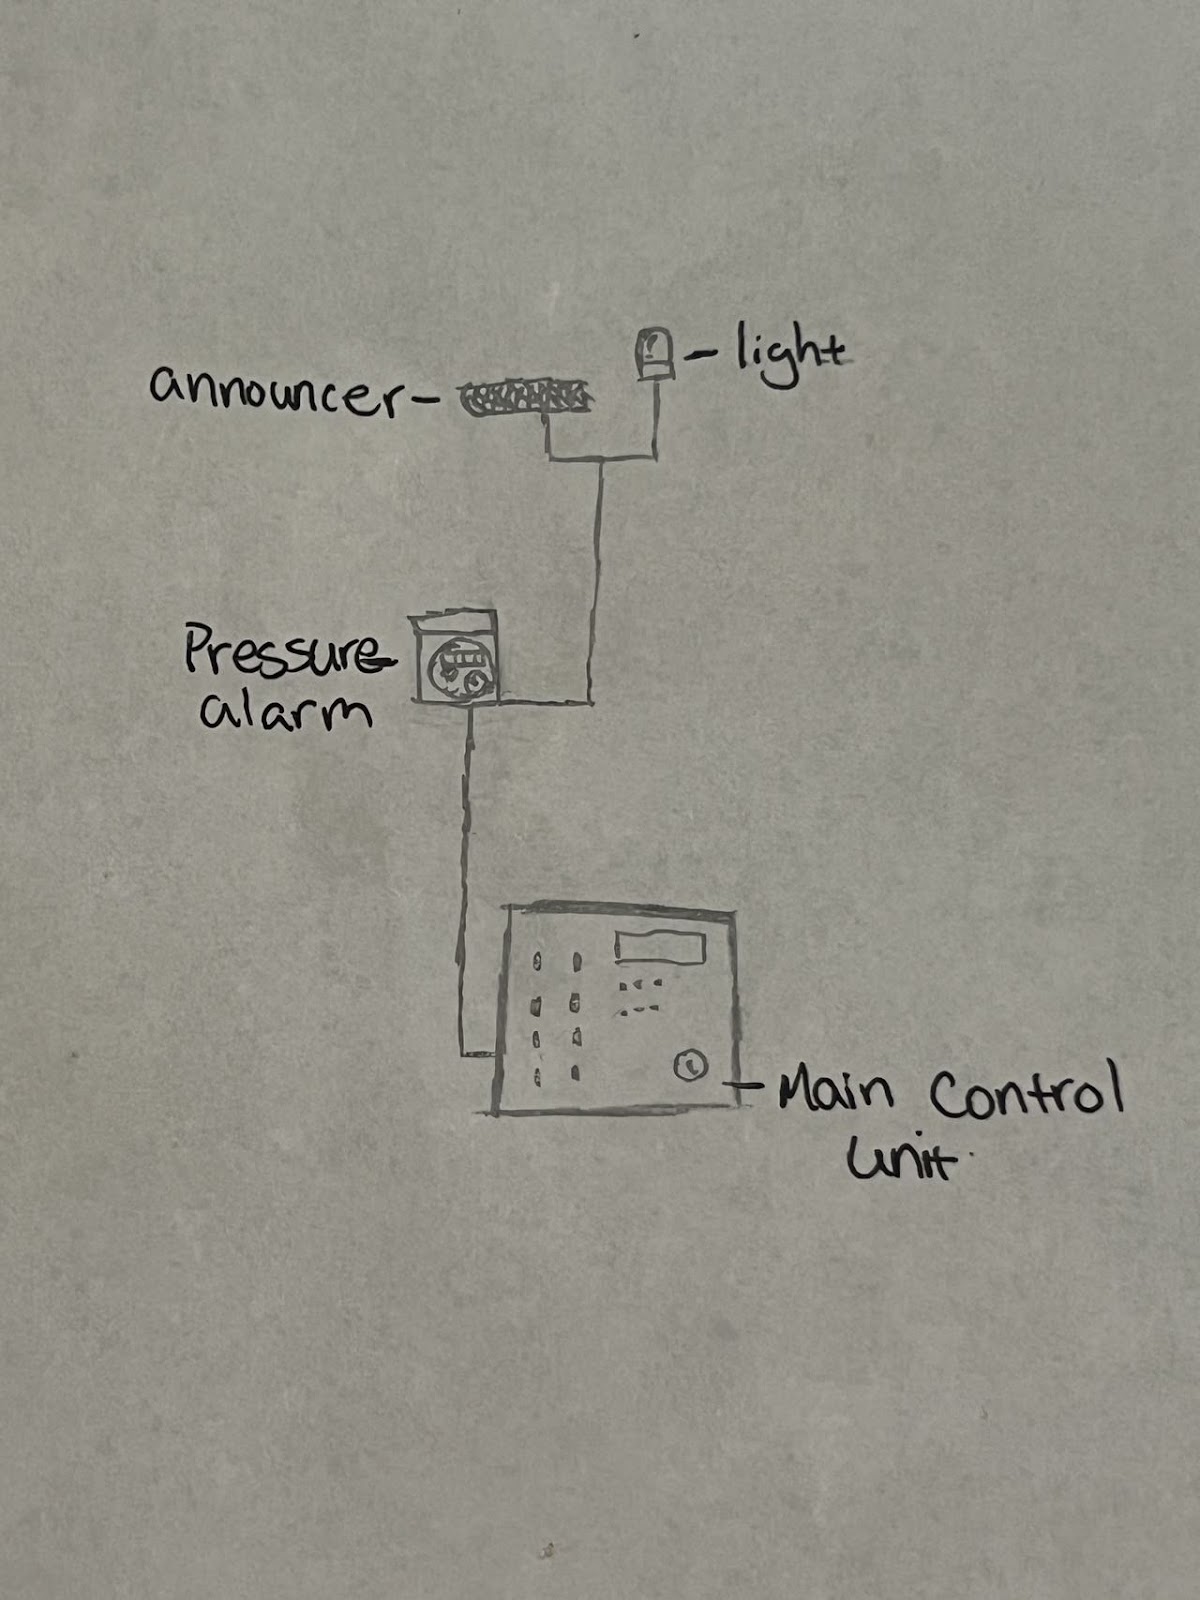 announcer
light
Pressure
alarm
Main Control
unit